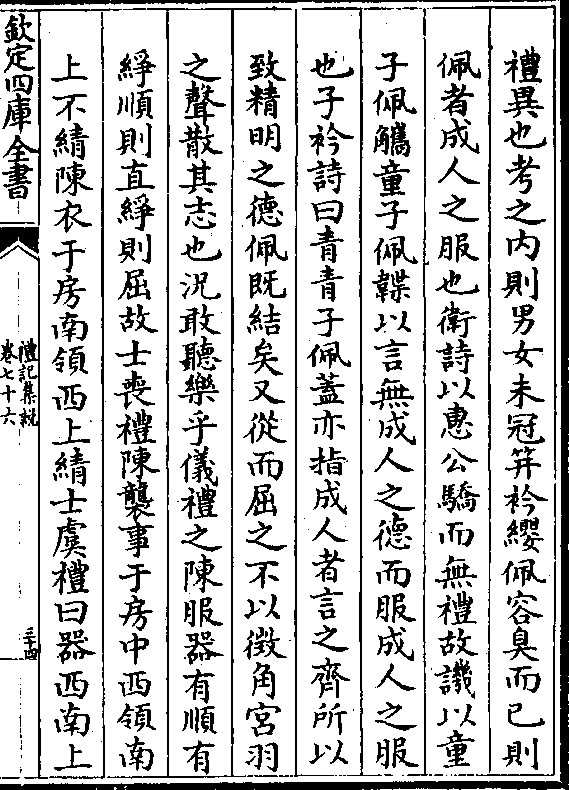 禮異也考之内則男女未冠笄衿纓佩容臭而已則
佩者成人之服也衛詩以惠公驕而無禮故譏以童
子佩觿童子佩韘以言無成人之德而服成人之服
也子衿詩曰青青子佩蓋亦指成人者言之齊所以
致精明之德佩既結矣又從而屈之不以徴角宮羽
之聲散其志也況敢聽樂乎儀禮之陳服器有順有
綪順則直綪則屈故士喪禮陳襲事于房中西領南
上不綪陳衣于房南領西上綪士虞禮曰器西南上
欽定四庫全書
禮記集說
卷七十六
三十四